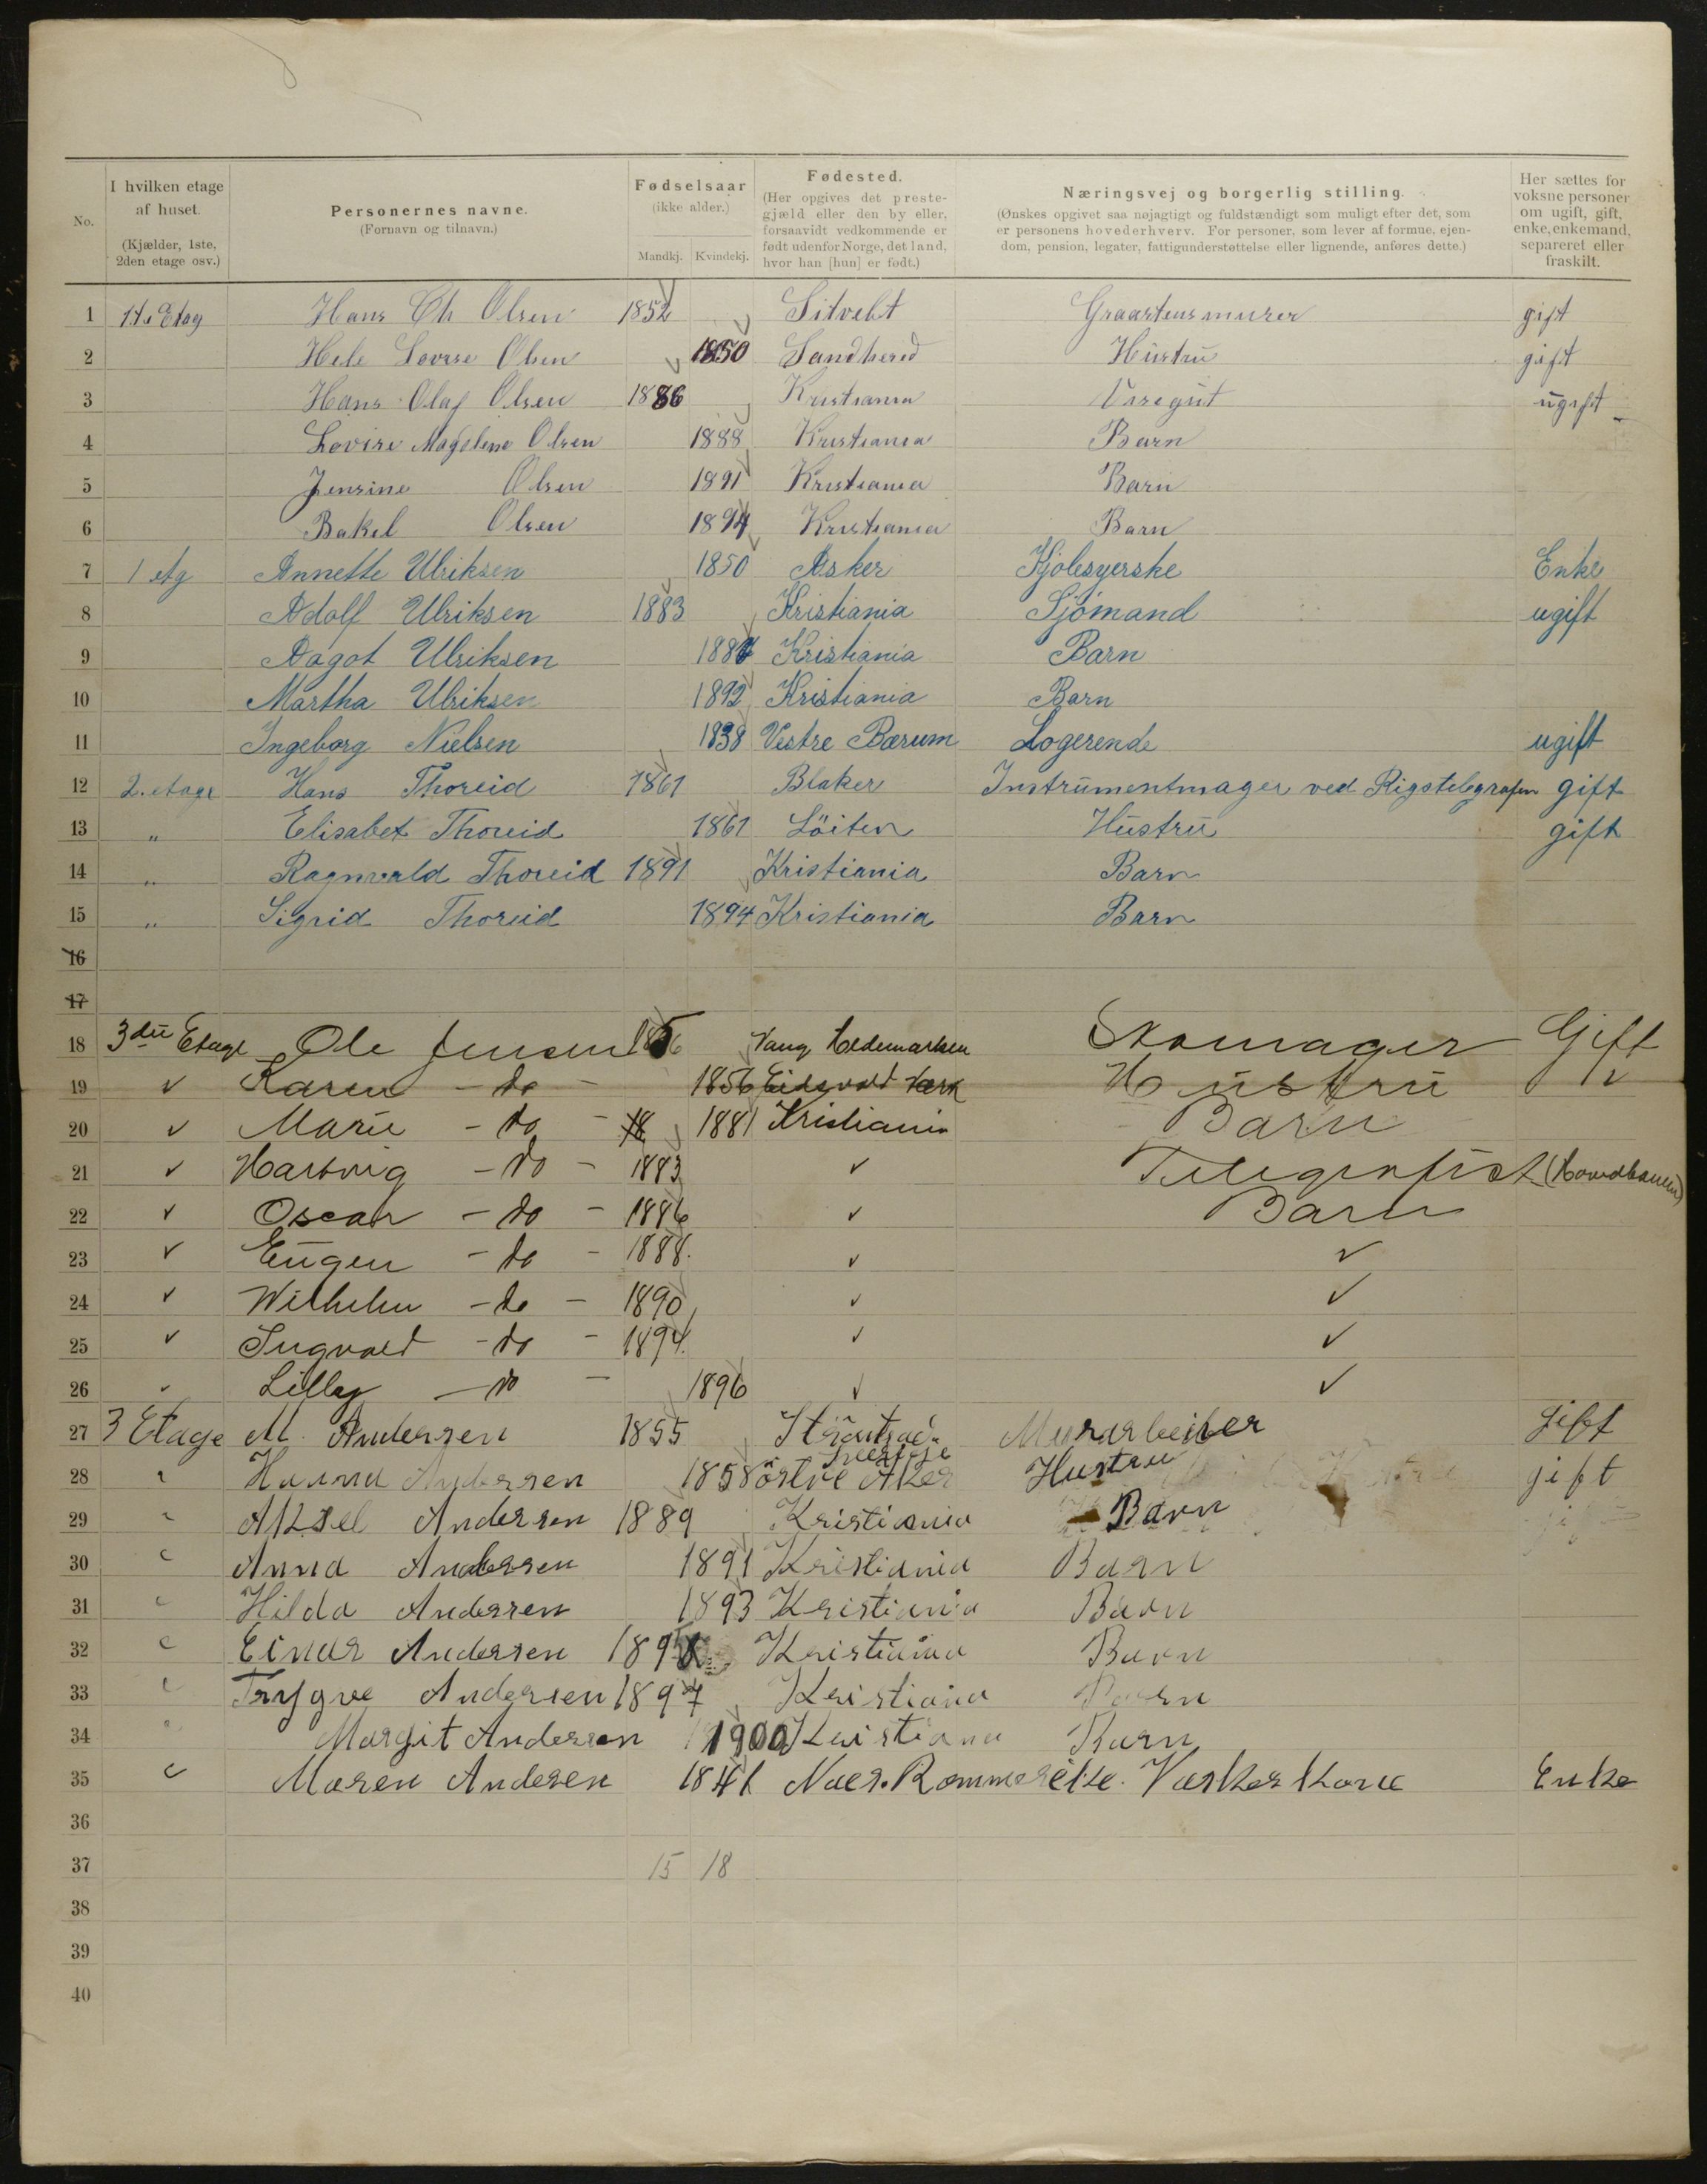 No.
I hvilken etage
af huset.
(Kjælder, 1ste,
2den etage osv.)
Personernes navne.
(Fornavn og tilnavn.)
Fødselsaar
(ikke alder.)
Mandkj. Kvindekj.
Fødested.
(Her opgives det preste-
gjæld eller den by eller,
forsaavidt vedkommende er
født udenfor Norge, det land,
hvor han [hun] er født.)
Næringsvej og borgerlig stilling.
(Ønskes opgivet saa nøjagtigt og fuldstændigt som muligt efter det, som
er personens hovederhverv. For personer, som lever af formue, ejen-
dom, pension, legater, fattigunderstøttelse eller lignende, anføres dette.)
Her sættes for
voksne personer
om ugift, gift,
enke, enkemand,
separeret eller
fraskilt.
1 1ste Etag Hans Ch Olsen 1852 Graastensmurer gift
2 Lovise Olsen 1850 Sandhered Hustru gift
3 Hans Olaf Olsen 1886 Kristiania Visegut ugift
4 Lovise Magdelene Olsen 1888 Kristiania Barn
5 Jensine Olsen 1891 Kristiania Barn
6 Rakel Olsen 1894 Kristiania Barn
7 1 etg Annette Ulriksen 1850 Asker Kjolesyerske Enke
8 Adolf Ulriksen 1883 Kristiania Sjömand ugift
9 Dagot Ulriksen 1887 Kristiania Barn
10 Martha Ulriksen 1892 Kristiania Barn
11 Ingeborg Nielsen 1838 Vestre Bærum Logerende ugift
12 2. etage Hans Thoreid 1861 Blaker Instrumentmager ved Rigstelegrafen gift
13 " Elisabet Thoreid 1861 Löiten Hustru gift
14 " Ragnvald Thoreid 1891 Kristiania Barn
15 " Sigrid Thoreid 1894 Kristiania Barn
16
17
18 3die Etage Ole Jensen Vang Hedemarken Skomager Gift
19 v Karen - do - 1856 Eidsvold Værk Hustru v
20 v Marie - do - 18 1881 Kristiania Barn
21 v Hartvig - do - 1883 v Telegrafist (Hovedbanen)
22 v Oscar - do - 1886 v Barn
23 v Eugen - do - 1888. v v
24 v Wilhelm - do - 1890 v v
25 v Ingvald - do - 1894. v v
26 v Lilly - do - 1896 v v
27 3 Etage M. Andersen 1855 Murarbeider gift
28 " Hanna Andersen 1858 östre Aker Hustru gift
29 " Aksel Andersen 1889 Kristiania Barn
30 " Anna Andersen 1891 Kristiania Barn
31 " Hilda Andersen 1893 Kristiania Barn
32 " Einar Andersen Kristiania Barn
33 " Trygve Andersen 1897 Kristiania Barn
34 " Margit Andersen 1900 Kristiana Barn
35 " Maren Andersen 1841 Naes. Rommerike. Vaskerkone Enke
36
37 15 18
38
39
40